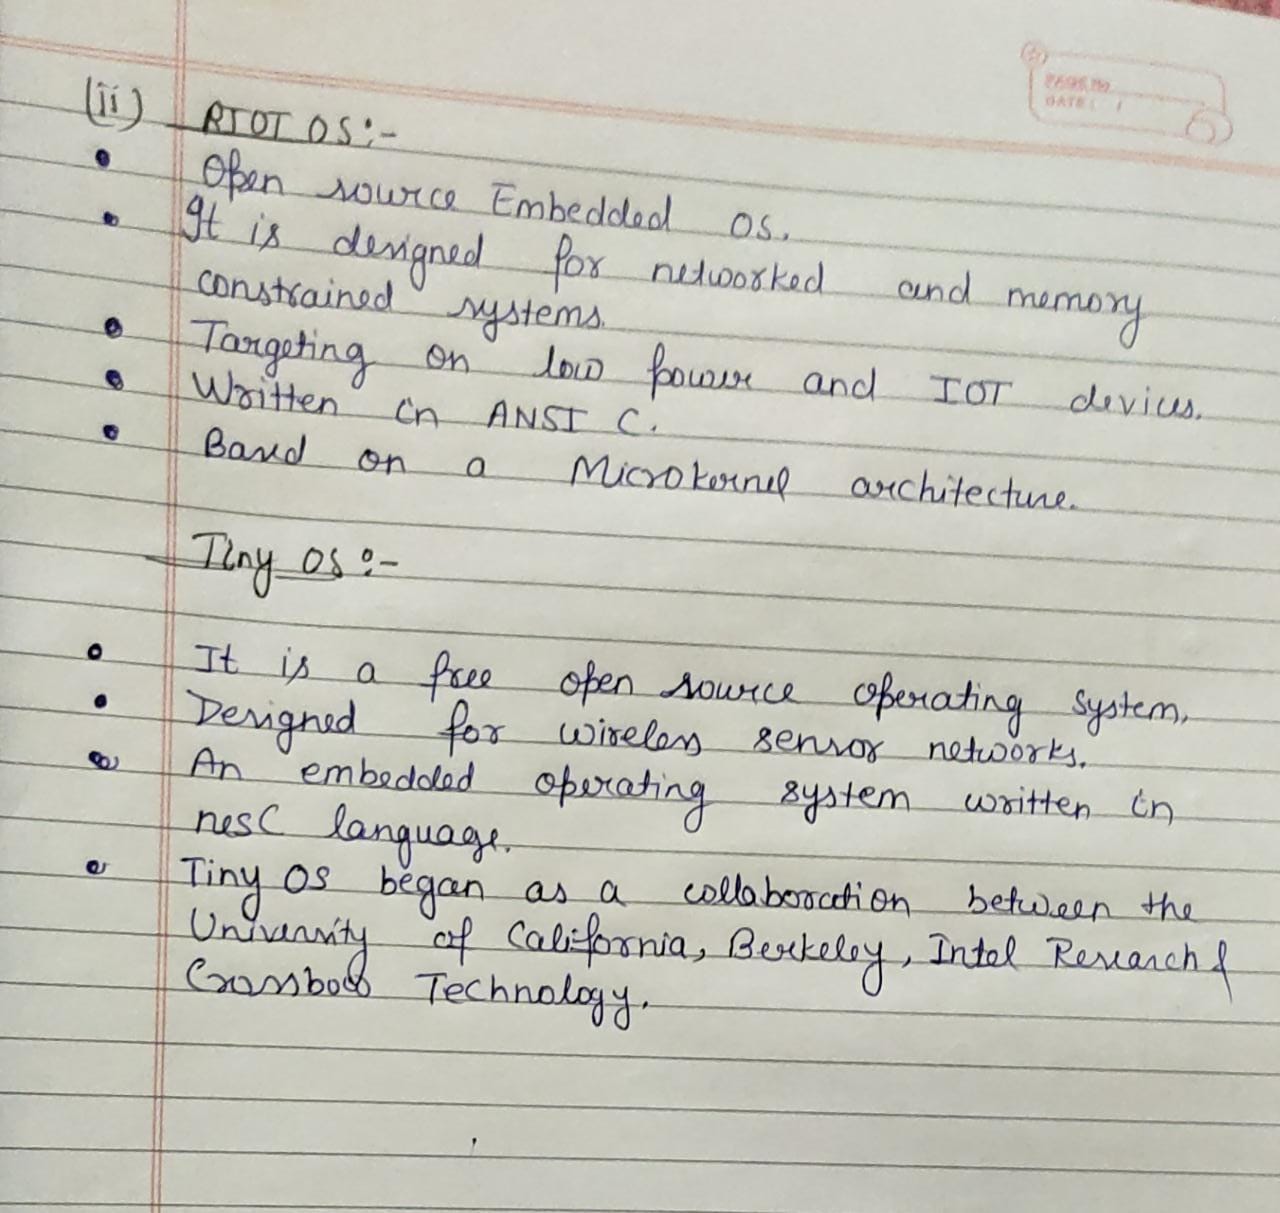 PAGE NO
DATE: /
(ii) RIOT OS:-
• Open source Embedded OS.
• It is designed for networked and memory
constrained systems.
• Targeting on low power and IOT devices.
• Written in ANSI C.
• Based on a Microkernel architecture.
Tiny OS:-
• It is a free open source operating system.
• Designed for wireless sensor networks.
• An embedded operating system written in
nesC language.
• Tiny OS began as a collaboration between the
University of California, Berkeley, Intel Research &
Crossbow Technology.